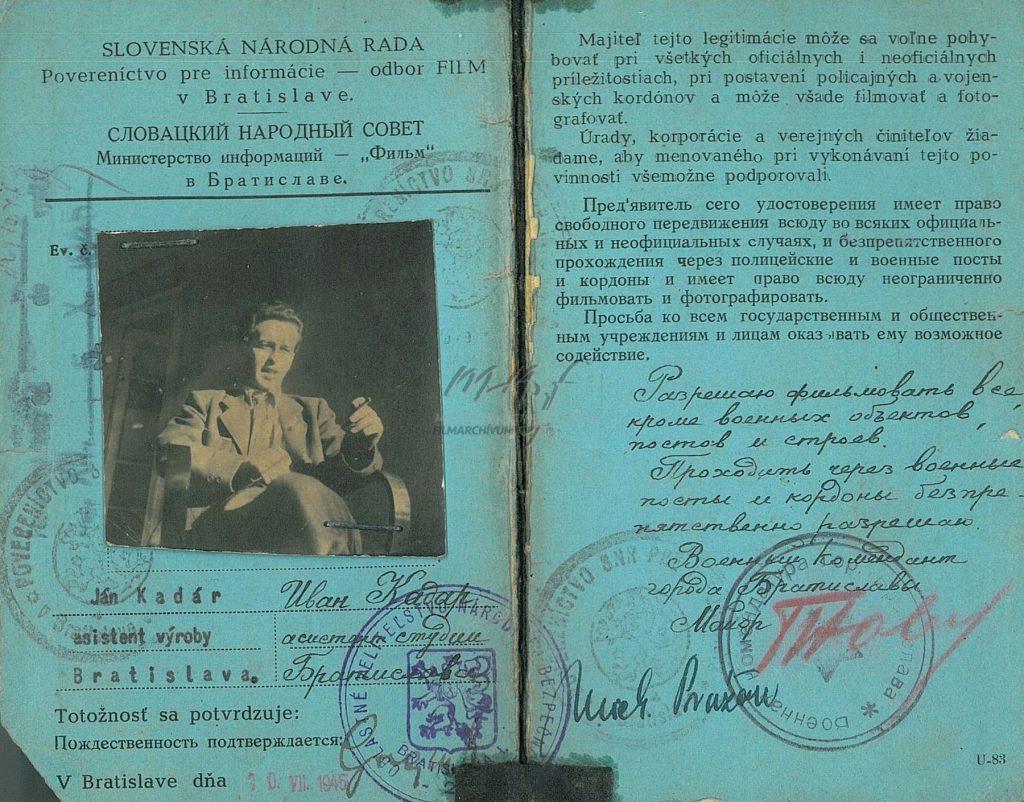 SLOVENSKÁ NÁRODNÁ RADA
Povereníctvo pre informácie — odbor FILM
v Bratislave.
СЛОВАЦКИЙ НАРОДНЫЙ СОВЕТ
Министерство информаций — „Фильм“
в Братиславе.
Ev. č.
FILMARCHÍVUM
Ján Kadár
Иван Кадар
asistent výroby
асистент студии
Bratislava.
Братислава
Totožnosť sa potvrdzuje:
Пождественность подтверждается:
V Bratislave dňa 10. VII. 1945
POVERENÍCTVO
BRATISLAVA
Majiteľ tejto legitimácie môže sa voľne pohy-
bovať pri všetkých oficiálnych i neoficiálnych
príležitostiach, pri postavení policajných a vojen-
ských kordónov a môže všade filmovať a foto-
grafovať.
Úrady, korporácie a verejných činiteľov žia-
dame, aby menovaného pri vykonávaní tejto po-
vinnosti všemožne podporovali.
Пред'явитель сего удостоверения имеет право
свободного передвижения всюду во всяких официаль-
ных и неофициальных случаях, и безпрепятственного
прохождения через полицейские и военные посты
и кордоны и имеет право всюду неограниченно
фильмовать и фотографировать.
Просьба ко всем государственным и обществен-
ным учреждениям и лицам оказывать ему возможное
содействие.
Разрешаю фильмовать все
кроме военных объектов,
постов и строев.
Проходить через военные
посты и кордоны безпре-
пятственно разрешаю.
Военный Комендант
города Братиславы
Майор
U-83